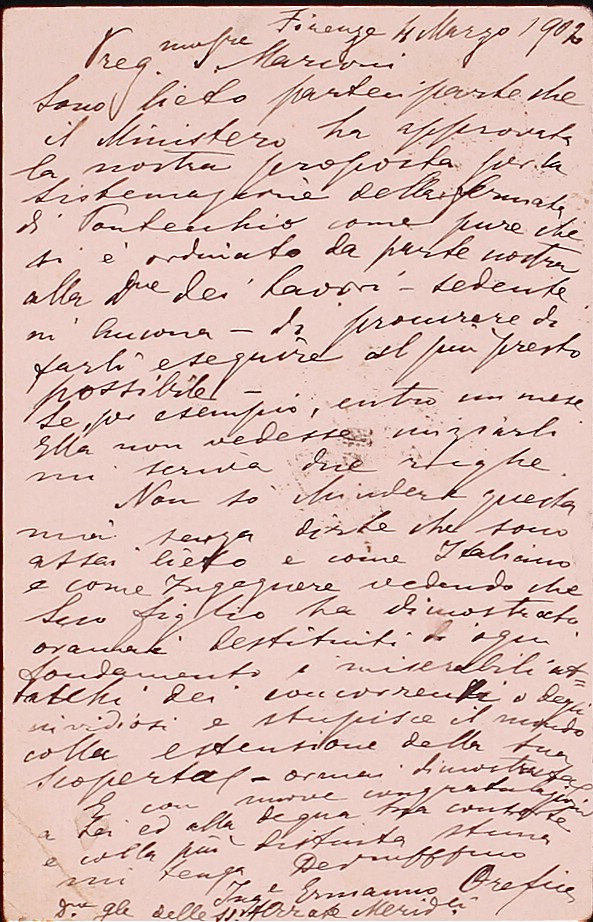 Firenze 4 Marzo 1902
Preg. mo Sre Marconi
Sono lieto parteciparle che
il Ministero ha approvata
la nostra proposta per la
sistemazione della fermata
di Pontecchio come pure che
si è ordinato da parte nostra
alla Dne dei Lavori - sedente
in Ancona - di procurare di
farli eseguire al più presto
possibile -
Se, per esempio, entro un mese
Ella non vedesse iniziarli
mi scriva due righe.
Non so chiudere questa
mia senza dirle che sono
assai lieto e come Italiano
e come Ingegnere vedendo che
Suo figlio ha dimostrato
oramai destituiti di ogni
fondamento i miserabili at=
tacchi dei concorrenti o degli
invidiosi e stupisce il mondo
colla estensione della sua
scoperta - ormai dimostrata
E con nuove congratulazioni
a Lei ed alla degna Sua consorte
e colla più distinta stima
mi tenga Devmo
Inge Ermanno Orefice
Dne gle delle Merid